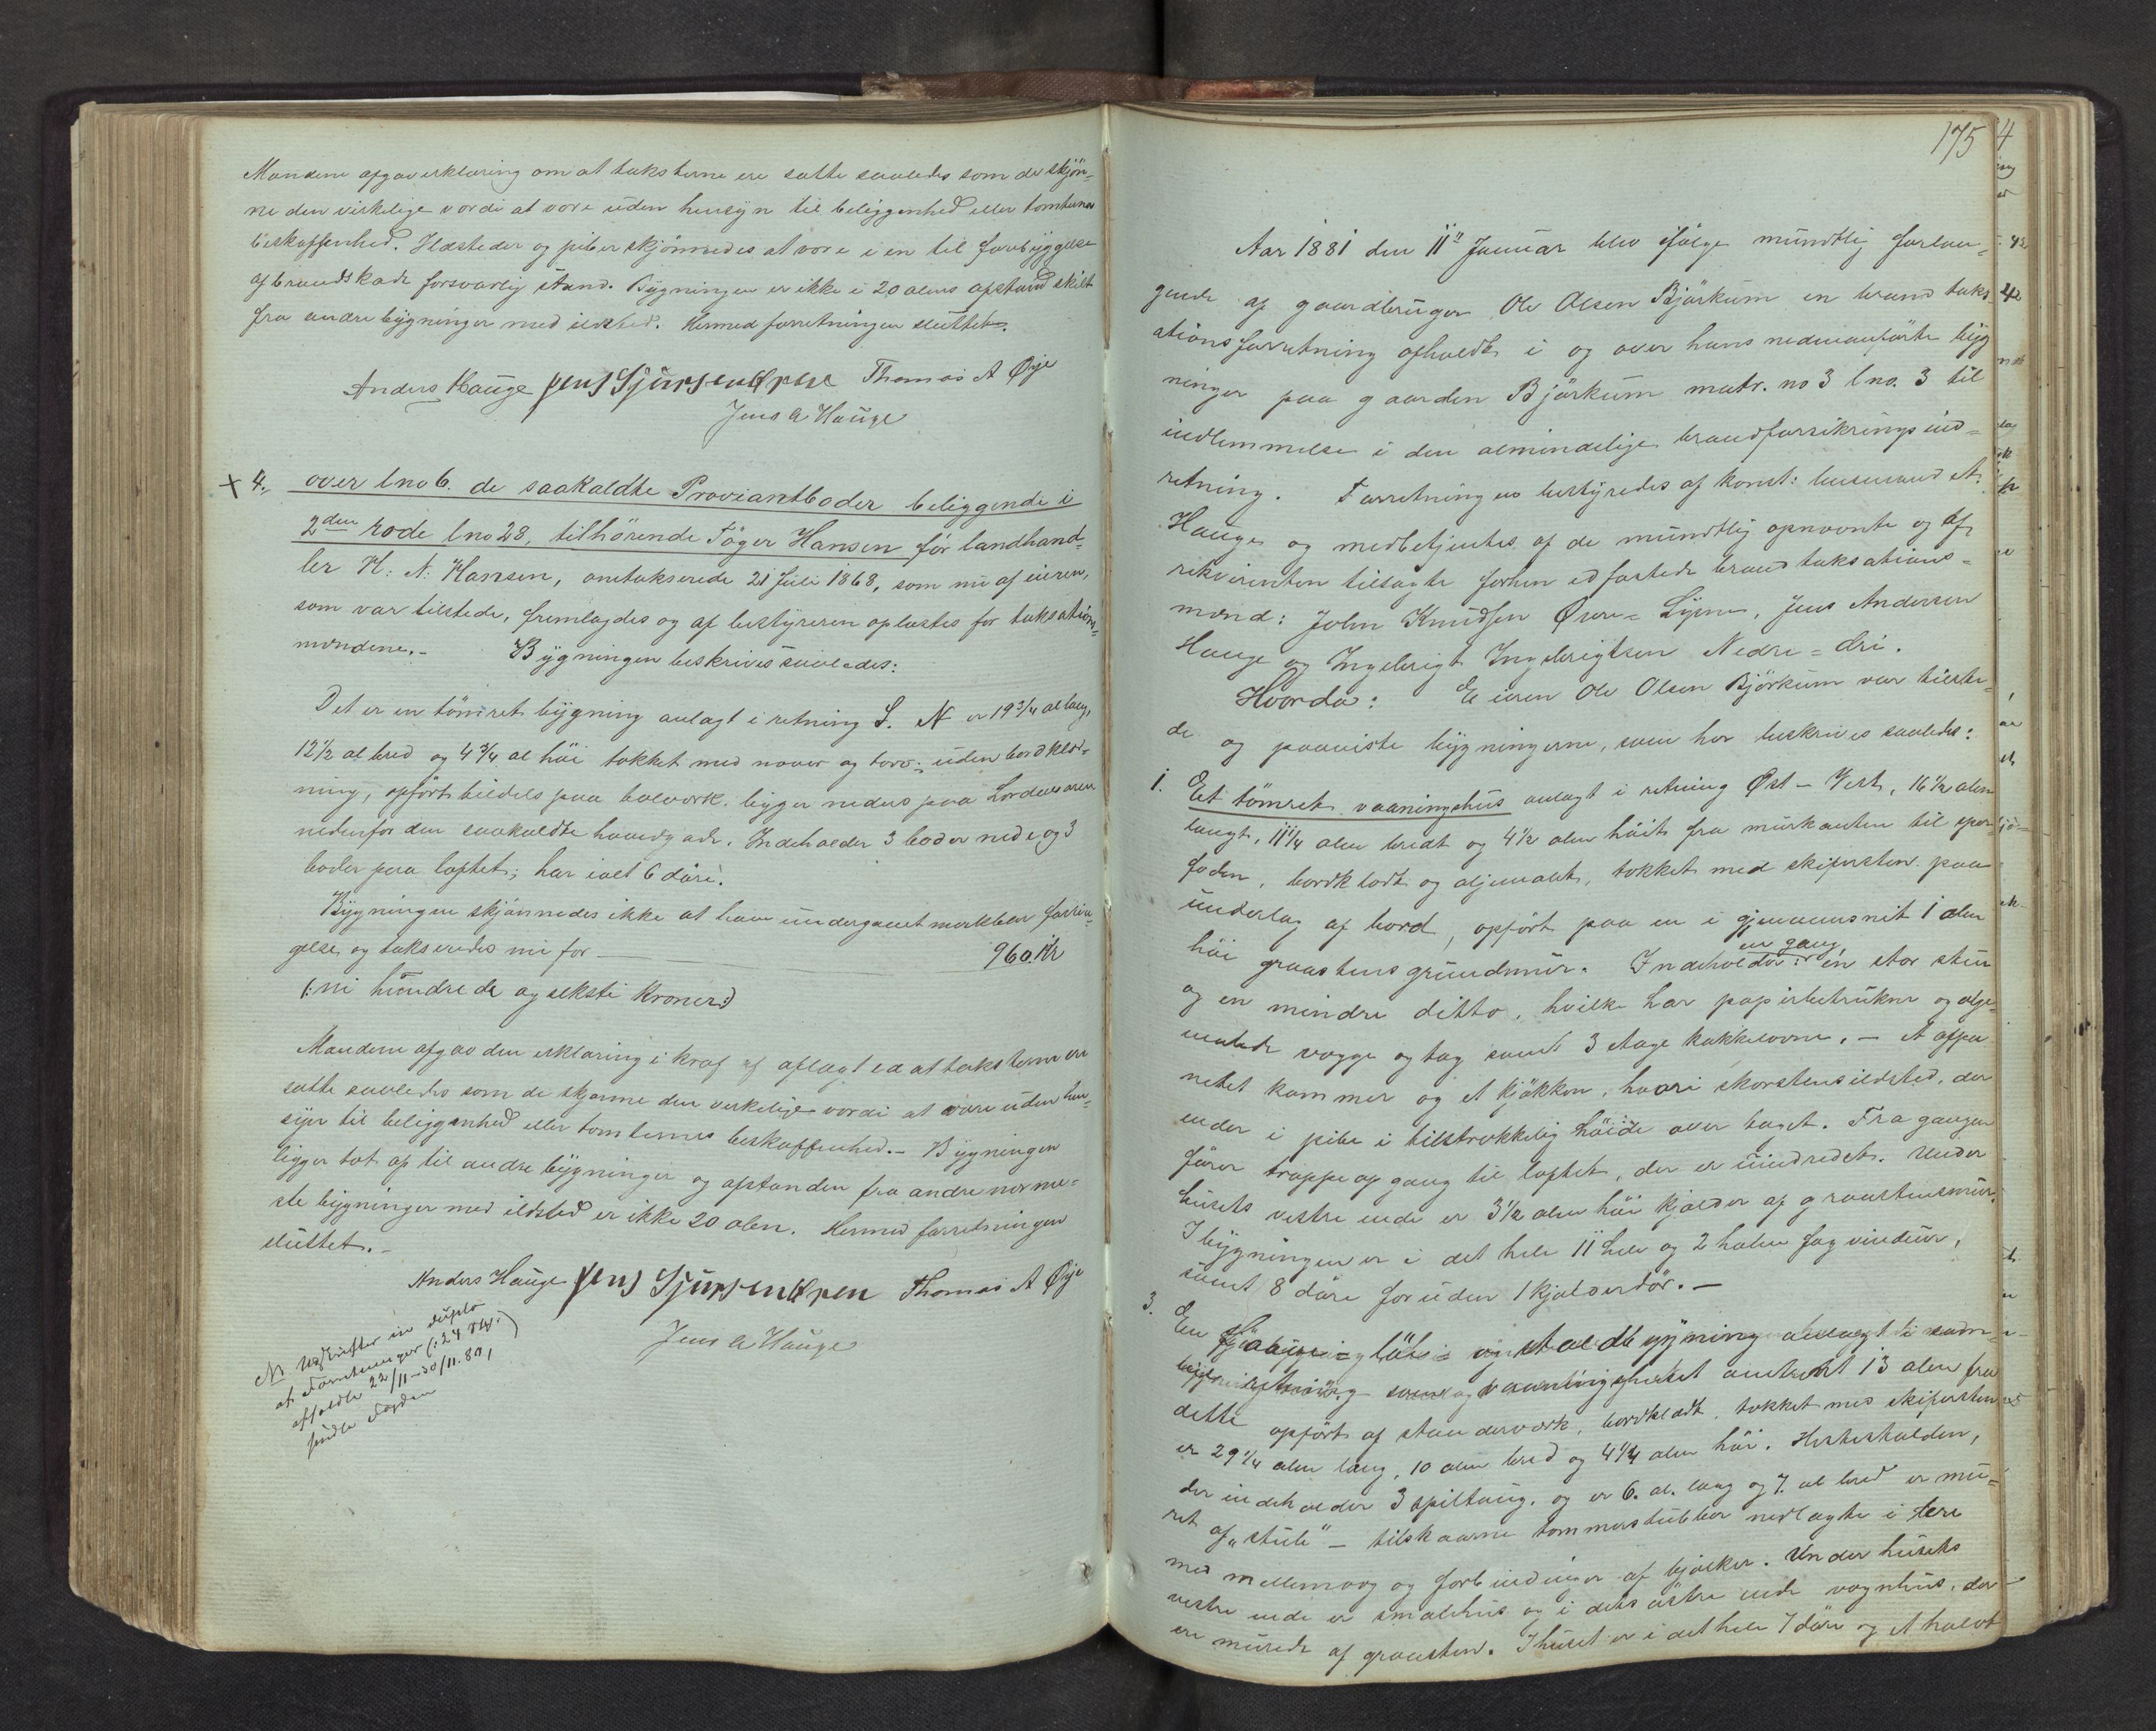 Mændene afgav erklæring om at taksterne ere satte saaledes som de skjøn-
ne den virkelige værdi at være uden hensyn til beliggenhed eller tomternes
beskaffenhed. Ildsteder og piber skjønnedes at være i en til forebyggelse
af brandskade forsvarlig stand. Bygningen er ikke i 20 alens afstand skilt
fra andre bygninger med ildsted. Hermed forretningen sluttet.
Anders Hauge Jens Sjursen Thomas A Øye
Jens A Hauge
x 4. over lno 6. de saakaldte Proviantboder beliggende i
2den rode lno 28, tilhørende Tøger Hansen før landhand-
ler H: N: Hansen, omtakserede 21 Juli 1868, som nu af eieren,
som var tilstede, fremlagdes og af bestyreren oplæstes for taksations-
mændene. - Bygningen beskrives saaledes:
Det er en tømret bygning anlagt i retning S. N er 19 3/4 al lang,
12 1/2 al bred og 4 3/4 al høi tækket med næver og torv; uden bordklæd-
ning, opført tildels paa bolværk. ligger nederst paa Lærdalsøren
nedenfor den saakaldte hovedgade. Indeholder 3 boder nede og 3
boder paa loftet; har ialt 6 døre.
Bygningen skjønnedes ikke at have undergaaet mærkbar forrin-
gelse og takseredes nu for 960. Kr
(: ni hundrede og seksti Kroner :)
Mændene afgav den erklæring i kraf af aflagt ed at taksterne ere
satte saaledes som de skjønne den verkelige værdi at være uden hen-
syn til beliggenhed eller tomternes beskaffenhed. - Bygningen
ligger tæt op til andre bygninger og afstanden fra andre nærme-
ste bygninger med ildsted er ikke 20 alen. Hermed forretningen
sluttet. -
Anders Hauge Jens Sjursen Thomas A Øye
Jens A Hauge
NB Udskrifter in duplo
af Forretninger (: 24 Stk :)
afholdte 22/11 - 30/11. 80,
sendte Fogden
175
Aar 1881 den 11te Januar blev ifølge mundtlig forlan-
gende af gaardbruger Ole Olsen Bjørkum en brandtaks-
ationsforretning afholdt i og over hans nedenanførte byg
ninger paa gaarden Bjørkum matr. no 3 lno. 3 til
indlemmelse i den almindelige brandforsikringsind-
retning. Forretningen bestyredes af konst: lensmand A.
Hauge og medbetjentes af de mundtlig opnævnte og af
rekvirenten tilsagte forhen edfæstede brandtaksations-
mænd: John Knudsen Øvre-Ljøsne, Jens Andersen
Hauge og Ingebrigt Ingebrigtsen Nedre-Eri.
Hvorda: Eieren Ole Olsen Bjørkum var tilste-
de og paaviste bygningerne, som her beskrives saaledes:
1. Et tømret vaaningshus anlagt i retning Øst - Vest, 16 1/2 alen
langt, 11 1/4 alen bredt og 4 1/2 alen høit fra murkanten til spær-
foden, bordklædt og oljemalet, tækket med skifersten paa
underlag af bord, opført paa en i gjennemsnit 1 alen
høi graastensgrundmur. Indeholder: en gang, én stor stue
og en mindre ditto, hvilke har papirbetrukne og olje-
malede vægge og tag samt 3 etage kakkelovne. - Et afpa
nelet kammer og et kjøkken, hvori skorstensildsted, der
ender i pibe i tilstrækkelig høide over taget. Fra gangen
fører trappeopgang til loftet, der er uindredet. Under
husets vestre ende er 3 1/2 alen høi kjælder af graastensmur.
I bygningen er i det hele 11 hele og 2 halve fag vinduer,
samt 8 døre foruden 1 kjælderdør. -
3. En løe- og staldbygning anlagt i sam-
me retning som vaaningshuset omtrent 13 alen fra
dette opført af standerværk, bordklædt, tækket med skifersten
er 29 1/4 alen lang, 10 alen bred og 4 1/4 alen høi. Hestestalden,
der indeholder 3 spiltoug. og er 6. al. lang og 7. al bred er mu-
ret af "stule" - tilskaarne tømmerstubber nedlagte i lere
med mellemvæg og forbindinger af bjælker. Under husets
vestre ende er smalehus og i dets østre ende vognhus, der
ere murede af graasten. I huset er i det hele 7 døre og et halvt